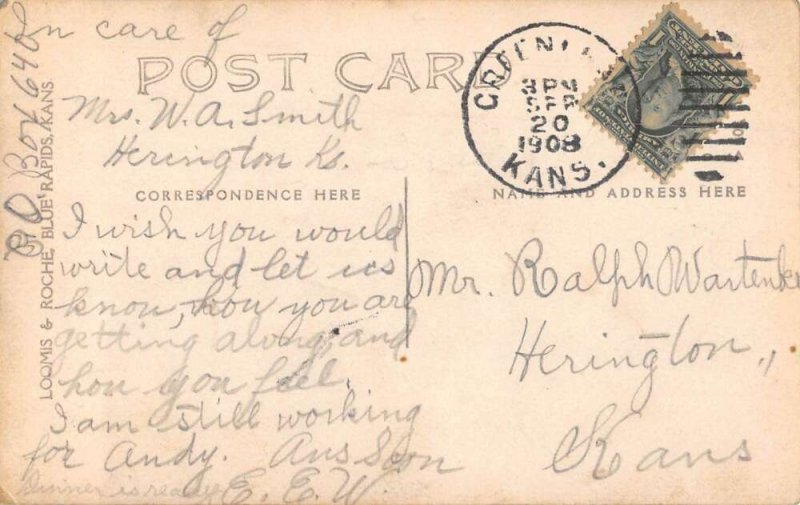 In care of
PO Box 646
POST CARD
Mrs. W. A. Smith
Herington Ks.
CORRESPONDENCE HERE
I wish you would
write and let us
know, how you are
getting along and
how you feel.
I am still working
for Andy. Ans Soon
Dinner is ready E. E. W.
LOOMIS & ROCHE, BLUE RAPIDS, KANS
3 PM
SEP
20
1908
KANS.
NAME AND ADDRESS HERE
Mr. Ralph
Herington,
Kans